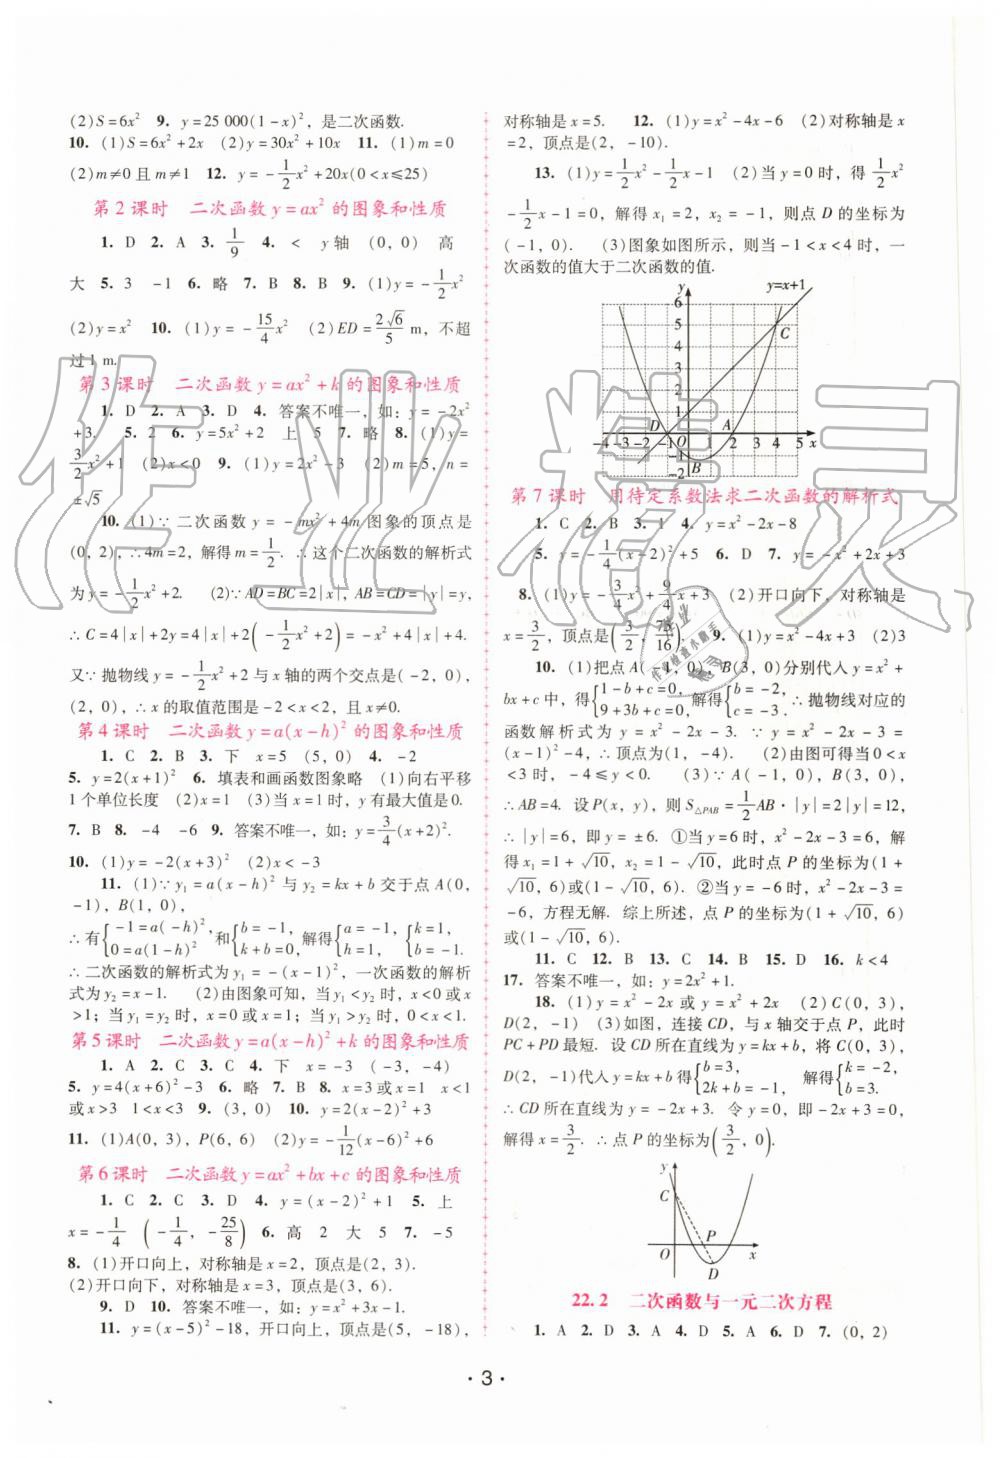 (2)S=6x²　9. y=25 000(1-x)²，是二次函数.
10. (1)S=6x²+2x　(2)y=30x²+10x　11. (1)m=0
(2)m≠0 且 m≠1　12. y=-1/2x²+20x(0<x≤25)
第 2 课时　二次函数 y=ax² 的图象和性质
1. D　2. A　3. 1/9　4. <　y 轴　(0，0)　高
大　5. 3　-1　6. 略　7. B　8. B　9. (1)y=-1/2x²
(2)y=x²　10. (1)y=-15/4x²　(2)ED=2√6/5 m，不超
过 1 m.
第 3 课时　二次函数 y=ax²+k 的图象和性质
1. D　2. A　3. D　4. 答案不唯一，如：y=-2x²
+3.　5. 2　6. y=5x²+2　上　5　7. 略　8. (1)y=
3/2x²+1　(2)x<0　9. (1)y=2x²-3　(2)m=5，n=
±√5
10. (1)∵二次函数 y=-mx²+4m 图象的顶点是
(0，2)，∴4m=2，解得 m=1/2. ∴这个二次函数的解析式
为 y=-1/2x²+2.　(2)∵AD=BC=2|x|，AB=CD=|y|，
∴C=4|x|+2y=4|x|+2(-1/2x²+2)=-x²+4|x|+4.
又∵抛物线 y=-1/2x²+2 与 x 轴的两个交点是(-2，0)，
(2，0)，∴x 的取值范围是-2<x<2，且 x≠0.
第 4 课时　二次函数 y=a(x-h)² 的图象和性质
1. C　2. B　3. 下　x=5　(5，0)　4. -2
5. y=2(x+1)²　6. 填表和画函数图象略　(1)向右平移
1 个单位长度　(2)x=1　(3)当 x=1 时，y 有最大值是 0.
7. B　8. -4　-6　9. 答案不唯一，如：y=3/4(x+2)².
10. (1)y=-2(x+3)²　(2)x<-3
11. (1)∵y₁=a(x-h)² 与 y₂=kx+b 交于点 A(0，
-1)，B(1，0)，
∴有{-1=a(-h)²，0=a(1-h)² 和{b=-1，k+b=0，解得{a=-1，h=1，{k=1，b=-1.
∴二次函数的解析式为 y₁=-(x-1)²，一次函数的解析
式为 y₂=x-1.　(2)由图象可知，当 y₁<y₂ 时，x<0 或 x
>1；当 y₁=y₂ 时，x=0 或 x=1；当 y₁>y₂ 时，0<x<1.
第 5 课时　二次函数 y=a(x-h)²+k 的图象和性质
1. A　2. C　3. C　4. 下　x=-3　(-3，-4)
5. y=4(x+6)²-3　6. 略　7. B　8. x=3 或 x=1　x<1
或 x>3　1<x<3　9. (3，0)　10. y=2(x-2)²+3
11. (1)A(0，3)，P(6，6)　(2)y=-1/12(x-6)²+6
第 6 课时　二次函数 y=ax²+bx+c 的图象和性质
1. C　2. C　3. D　4. y=(x-2)²+1　5. 上
x=-1/4　(-1/4，-25/8)　6. 高　2　大　5　7. -5
8. (1)开口向上，对称轴是 x=2，顶点是(2，3).
(2)开口向下，对称轴是 x=3，顶点是(3，6).
9. D　10. 答案不唯一，如：y=x²+3x-1.
11. y=(x-5)²-18，开口向上，顶点是(5，-18)，
对称轴是 x=5.　12. (1)y=x²-4x-6　(2)对称轴是 x
=2，顶点是(2，-10).
13. (1)y=1/2x²-1/2x-1　(2)当 y=0 时，得 1/2x²
-1/2x-1=0，解得 x₁=2，x₂=-1，则点 D 的坐标为
(-1，0).　(3)图象如图所示，则当-1<x<4 时，一
次函数的值大于二次函数的值.
y　y=x+1
6
5　C
4
3
2
1　D　A
-4-3-2-1 O 1 2 3 4 5 x
-1　B
-2
第 7 课时　用待定系数法求二次函数的解析式
1. C　2. B　3. 1　4. y=x²-2x-8
5. y=-1/4(x-2)²+5　6. D　7. y=-x²+2x+3
8. (1)y=-3/4x²+9/4x+3　(2)开口向下，对称轴是
x=3/2，顶点是(3/2，75/16)　9. (1)y=x²-4x+3　(2)3
10. (1)把点 A(-1，0)，B(3，0)分别代入 y=x²+
bx+c 中，得{1-b+c=0，9+3b+c=0，解得{b=-2，c=-3. ∴抛物线对应的
函数解析式为 y=x²-2x-3. ∵y=x²-2x-3=
(x-1)²-4，∴顶点为(1，-4).　(2)由图可得当 0<x
<3 时，-4≤y<0.　(3)∵A(-1，0)，B(3，0)，
∴AB=4. 设 P(x，y)，则 S△PAB=1/2AB·|y|=2|y|=12，
∴|y|=6，即 y=±6. ①当 y=6 时，x²-2x-3=6，解
得 x₁=1+√10，x₂=1-√10，此时点 P 的坐标为(1+
√10，6)或(1-√10，6). ②当 y=-6 时，x²-2x-3=
-6，方程无解. 综上所述，点 P 的坐标为(1+√10，6)
或(1-√10，6).
11. C　12. B　13. C　14. B　15. D　16. k<4
17. 答案不唯一，如：y=2x²+1.
18. (1)y=x²-2x 或 y=x²+2x　(2)C(0，3)，
D(2，-1)　(3)如图，连接 CD，与 x 轴交于点 P，此时
PC+PD 最短. 设 CD 所在直线为 y=kx+b，将 C(0，3)，
D(2，-1)代入 y=kx+b 得{b=3，2k+b=-1，解得{k=-2，b=3.
∴CD 所在直线为 y=-2x+3. 令 y=0，即-2x+3=0，
解得 x=3/2. ∴点 P 的坐标为(3/2，0).
y
C
P
O　x
D
22.2　二次函数与一元二次方程
1. A　2. D　3. A　4. D　5. A　6. D　7. (0，2)
·3·
作业精灵